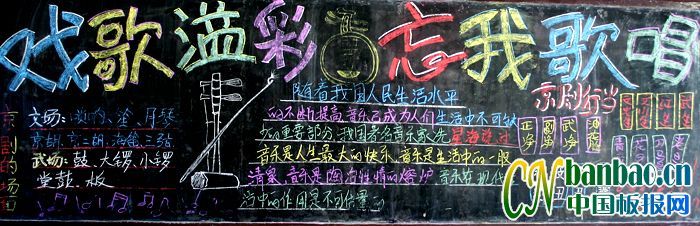 戏歌溢彩 忘我歌唱
京剧的场面
文场:
京胡、京二胡、海笛、三弦
武场:鼓、大锣、小锣
堂鼓、板
随着我国人民生活水平
的不断提高,音乐已成为人们生活中不可缺
少的重要部分,我国著名音乐家冼星海说过
音乐是人生最大的快乐,音乐是生活中的一股
清泉,音乐是陶冶性情的熔炉,音乐在现代
活中的作用是不可估量
京剧行当
正净
武净
CNbanbao.cn
中国板报网